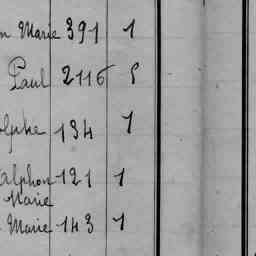 n Marie 391 1
Paul 2116
olphe 134 1
Alphon 121 1
Marie
Marie 143 1